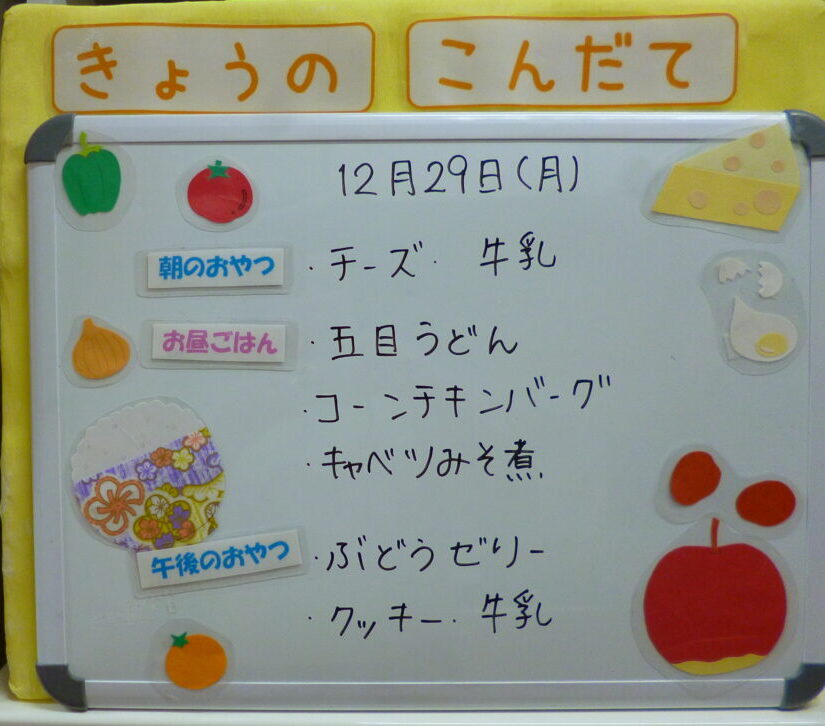 きょうの こんだて
12月29日(月)
朝のおやつ ・チーズ・ 牛乳
お昼ごはん ・五目うどん
・コーンチキンバーグ
・キャベツみそ煮
午後のおやつ ・ぶどうゼリー
・クッキー・牛乳